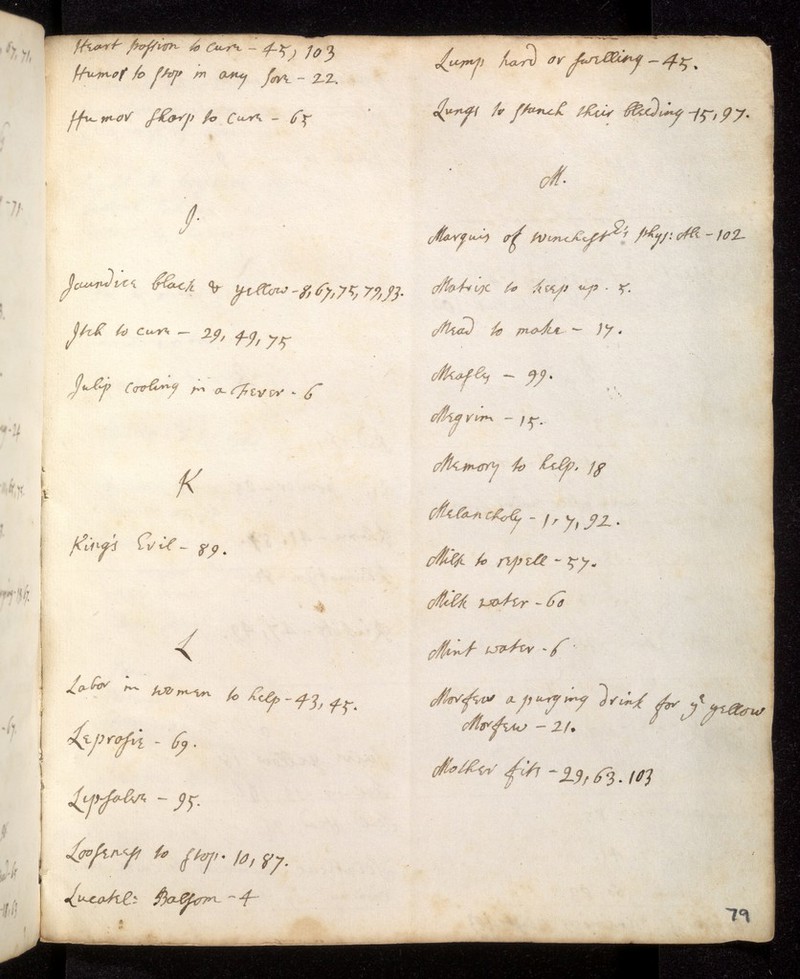 Heart passion to cure - 45, 103
Humor to stop in any sore - 22.
Humor sharp to cure - 65
J.
Jaundice black & yellow - 8, 67, 75, 79, 93.
Jtch to cure - 29, 49, 75
Julip cooling in a Fever - 6
K
King's Evil - 89.
L
Labor in women to help - 43, 45.
Leprosie - 69.
Lipsalve - 95.
Loosenesse to stop. 10, 87.
Lucatel: Balsom - 4
Lump hard or swelling - 45.
Lungs to stanch their bleeding - 15, 97.
M.
Marquis of Winchestrs phys: Ale - 102
Matrix to keep up. 5.
Mead to make - 17.
Measles - 99.
Megrim - 15.
Memory to help. 18
Melancholy - 1, 7, 92.
Milk to repell - 57.
Milk water - 60
Mint water - 6
Morfew a purging drink for ye yellow
Morfew - 21.
Mother fits - 29, 63. 103
79